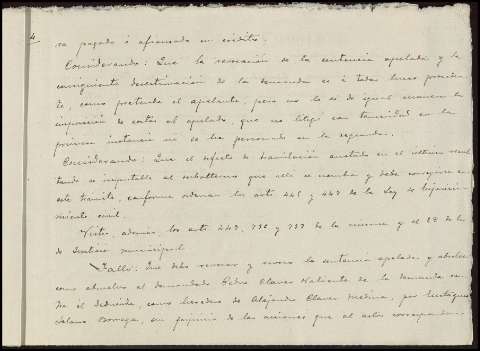 4
ra pagado ó afianzado su crédito.
Considerando: Que la revocación de la sentencia apelada y la
consiguiente desestimación de la demanda es á todas luces proceden-
te, como pretende el apelante, pero no lo es de igual manera la
imposición de costas al apelado, que no litigó con temeridad en la
primera instancia ni se ha personado en la segunda.
Considerando: Que el defecto de tramitación anotado en el último resul-
tando es imputable al que allí se nombra y debe corregirse en
este trámite, conforme ordenan los arts 445 y 447 de la Ley de Enjuicia-
miento civil.
Vistos, además, los arts. 443, 736 y 737 de la misma y el 28 de la
de Justicia municipal
Fallo: Que debo revocar y revoco la sentencia apelada, y absolver
como absuelvo al demandado Pedro Claver de la demanda con-
tra él deducida, como heredero de Alejandro Claver Medina, por
Solano sin perjuicio de las acciones que al actor correspondan